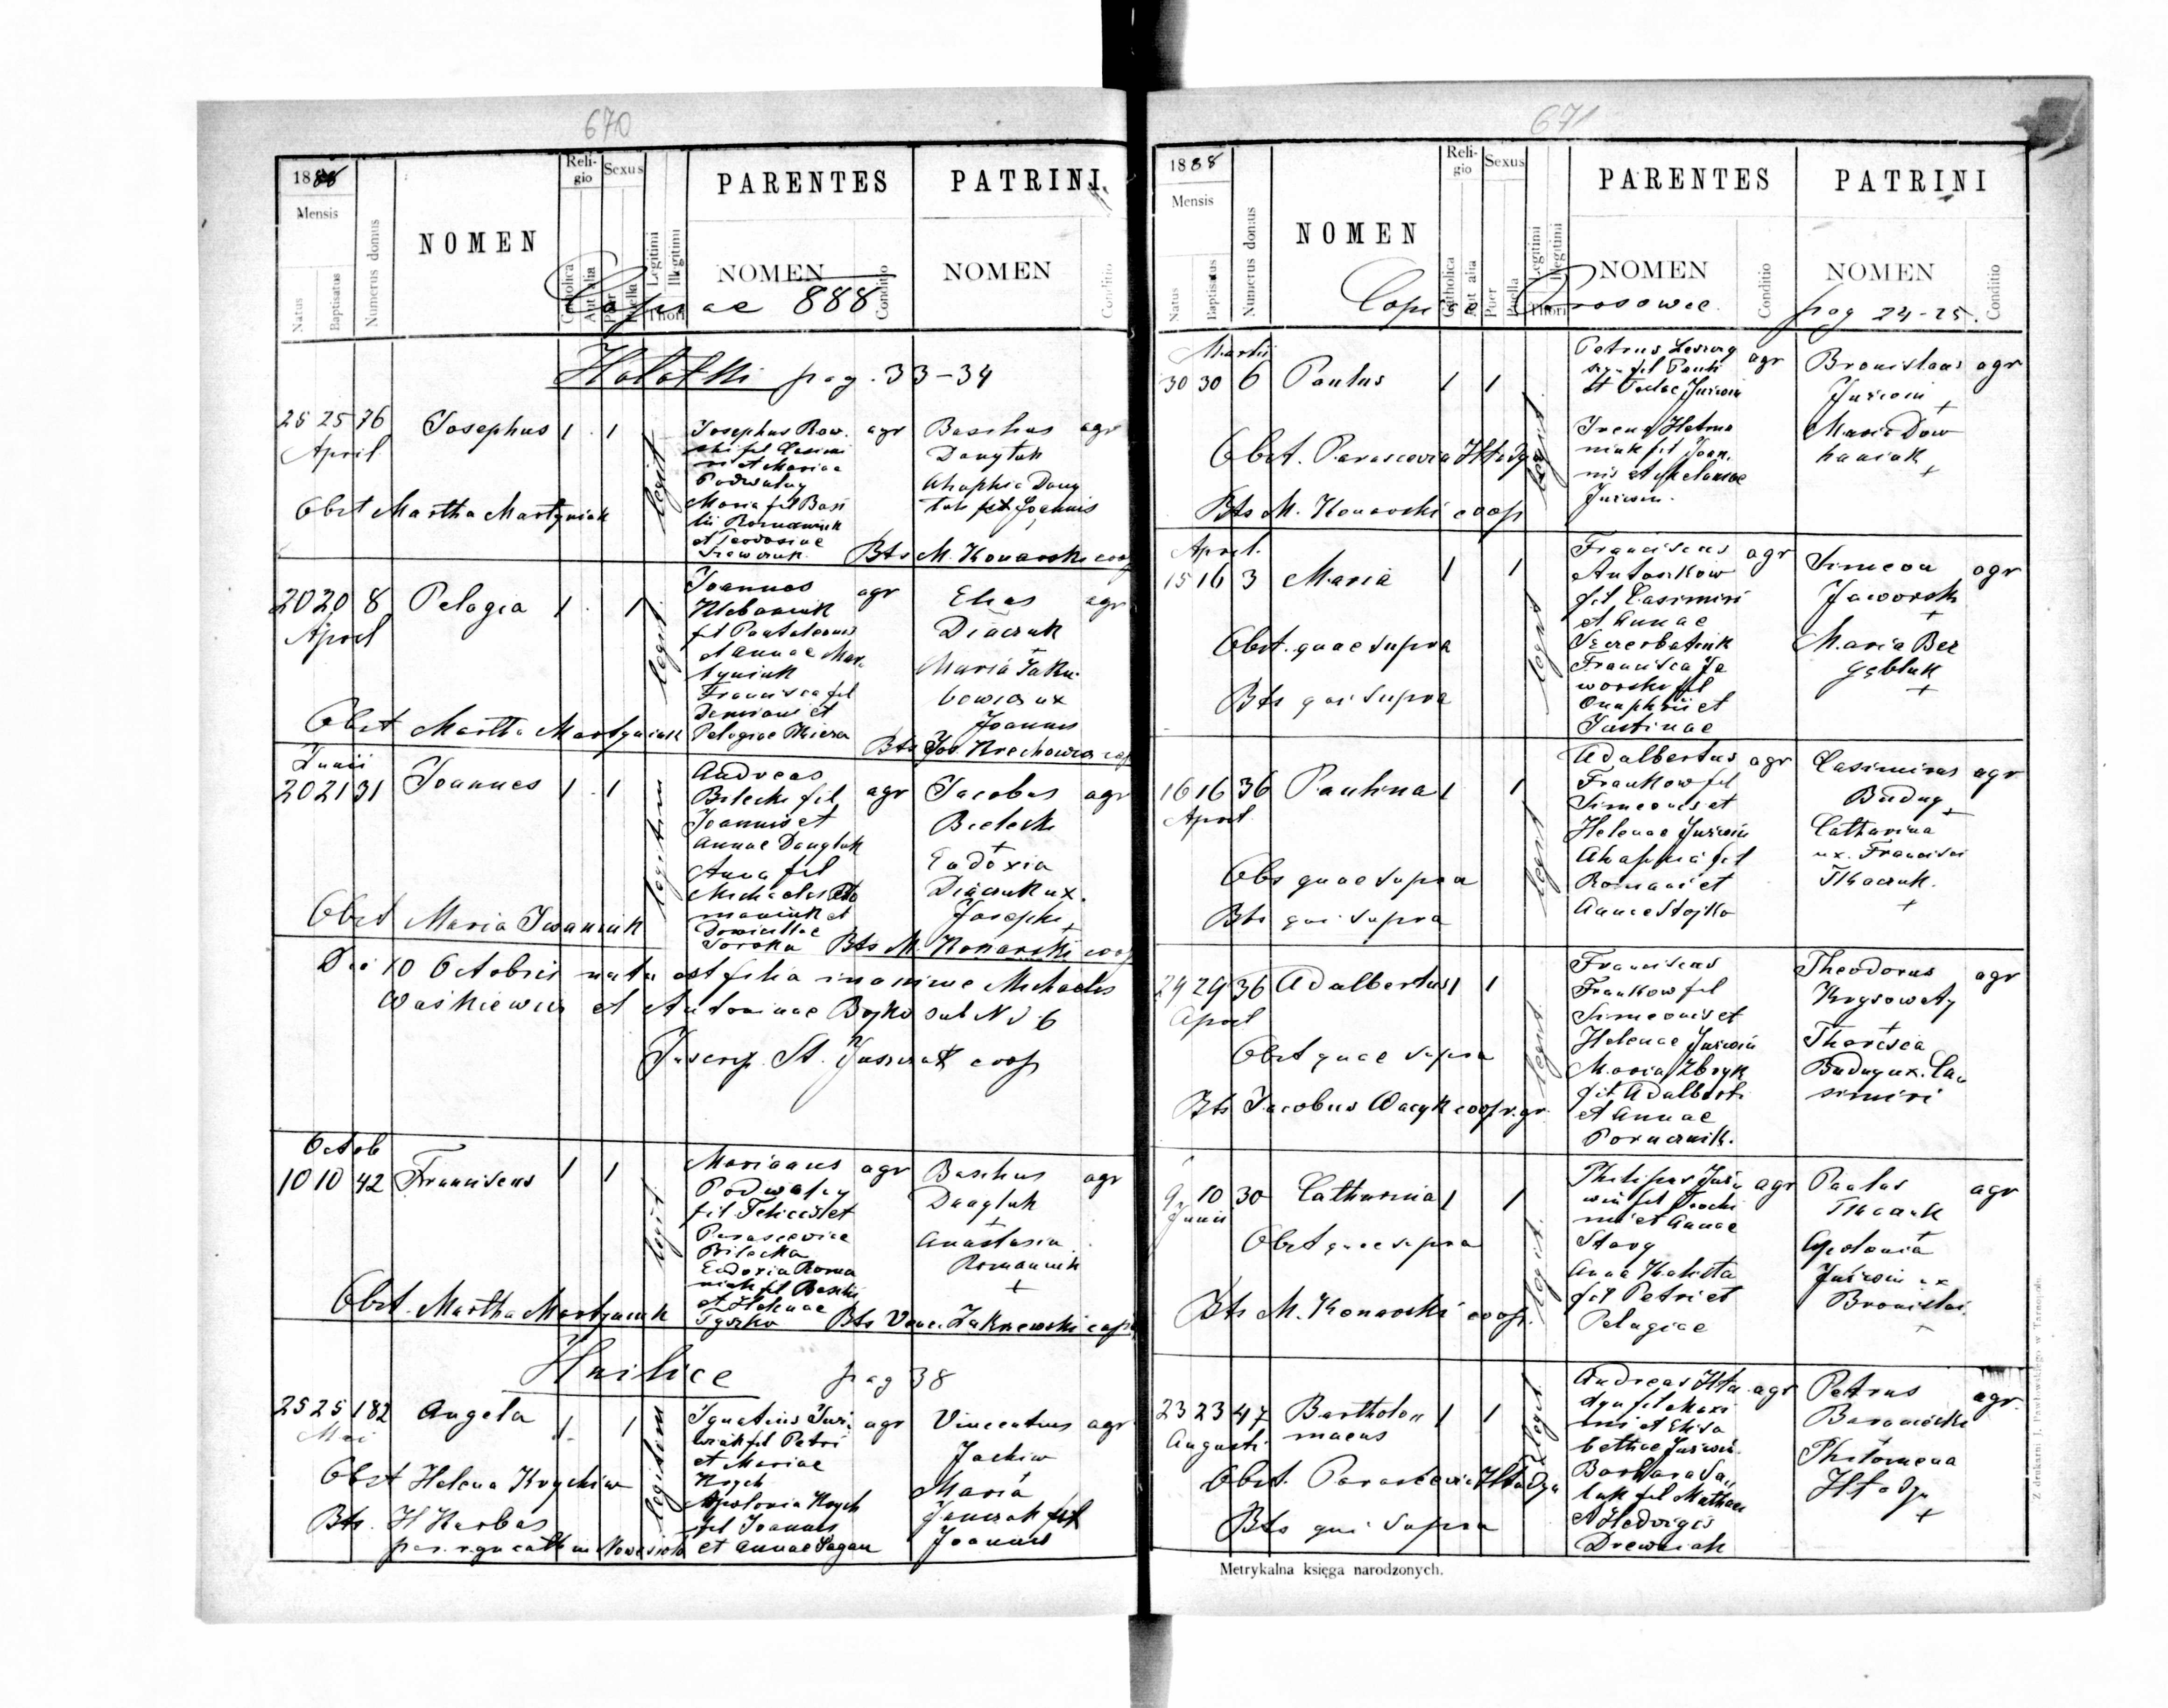 670
1888
Mensis
Natus
Baptisatus
Numerus domus
NOMEN
Religio
Catholica
Aut alia
Sexus
Puer
Puella
Legitimi
Illegitimi
Thori
PARENTES
NOMEN
Conditio
PATRINI
NOMEN
Conditio
Copiae 888
Hałołki pag. 33-34
25 25 76 Josephus 1 1
April
legit
Josephus Row.
ski fil Casimi
ri et Mariae
Podwałny
Maria fil Basi
lii Romaniuk
et Teodosiae
agr
Basilius agr
Danyluk
Ahaphia Dany
luk fil Joannis
Obst Martha Martyniuk
Bts M. Konarski coop
20 20 8 Pelagia 1 1
April
legit
Joannes agr
Klebaniuk
fil Pantaleonis
et Annae Mar
tyniuk
Francisca fil
Damiani et
Pelagiae
Elias agr
Diaczuk
+
Maria
ux
Joannis
Obst Martha Martyniuk
Bts Jos Krechowicz coop
Junii
20 21 31 Joannes 1 1
legitim
Andreas agr
Bilecki fil
Joannis et
Annae Danyluk
Anna fil
Michaelis Ro
maniuk et
Soroka
Jacobus agr
Bielecki
+
Eudoxia
Diaczuk ux.
Josephi
+
Obst Maria Iwaniuk
Bts M. Konarski coop
Die 10 Octobris nata est filia innomine Michaelis
Waśkiewicz et Antoninae Bojko sub N 6
Inscrip. St. coop
Octob
10 10 42 Franciscus 1 1
legit
Marianus agr
Podwałny
fil. Felicis et
Parasceviae
Bilecka
Eudoxia Roma
niuk fil Basilii
et Helenae
Tyszko
Basilius agr
Danyluk
+
Anastasia
Romaniuk
+
Obst. Martha Martyniuk
Bts Vinc. Zakrzewski
Hnilice pag 38
25 25 182 Angela 1 1
Mai
legitim
Ignatius Juri
wiak fil Petri
et Mariae
Krych
Apolonia Krych
fil Joannis
et Annae Pagan
agr
Vincentius agr
Jachiw
+
Maria
Janczak fil
Joannis
Obst Helena Krychiw
Bts. H Harbas
671
1888
Mensis
Natus
Baptisatus
Numerus domus
NOMEN
Religio
Catholica
Aut alia
Sexus
Puer
Puella
Legitimi
Illegitimi
Thori
PARENTES
NOMEN
Conditio
PATRINI
NOMEN
Conditio
Copiae Prosowce pag 24-25.
Martii
30 30 6 Paulus 1 1
legit
Petrus agr
fil Pauli
et Teclae Juświn
Irena Hetma
niuk fil Joan.
nis et Melaniae
Juświn.
Bronislaus agr
Juświn
+
Maria Dow
haniuk
+
Obst. Parascevia Hładyj
Bts M. Konarski coop
April.
15 16 3 Maria 1 1
legit
Franciscus agr
Antoszków
fil Casimiri
et Annae
Szczerbatiuk
Francisca Ja
worski fil
Onuphrii et
Justinae
Simeon agr
Jaworski
+
Maria Ber
+
Obst. quae supra
Bts qui supra
16 16 36 Paulina 1 1
April
legit
Adalbertus agr
Frankow fil
Simeonis et
Helenae Juświn
Ahaphia fil
Romani et
Annae Stojko
Casimirus agr
Budny
+
Catharina
ux. Francisci
Tkaczuk.
+
Obs quae supra
Bts qui supra
29 29 36 Adalbertus 1 1
April
legit
Franciscus
Frankow fil
Simeonis et
Helenae Juświn
Maria Zbryk
fil Adalberti
et Annae
Theodorus agr
Krysowaty
+
Theresia
Budny ux. Ca
simiri
Obst quae supra
Bts Jacobus Wacyk coop r. gr.
9 10 30 Catharina 1 1
Junii
legit
Philipus Juś agr
win fil Joachi
mi et Annae
Stary
Anna Kaleta
fil Petri et
Pelagiae
Paulus agr
Tkaczuk
+
Apolonia
Juświn ux
Bronislai
+
Obst quae supra
Bts M. Konarski coop.
23 23 47 Bartholo 1 1
Augusti maeus
legit
Andreas Hła agr
dyn fil Maxi
mi et Elisa
bethae Juświn
Barbara Sa
luk fil Mathaei
et Hedvigis
Drewniak
Petrus agr.
Baranowski
+
Philomena
Hładyj
+
Obst. Parascevia Hładyj
Bts qui supra
Metrykalna księga narodzonych.
Z drukarni J. Pawłowskiego w Tarnopolu.